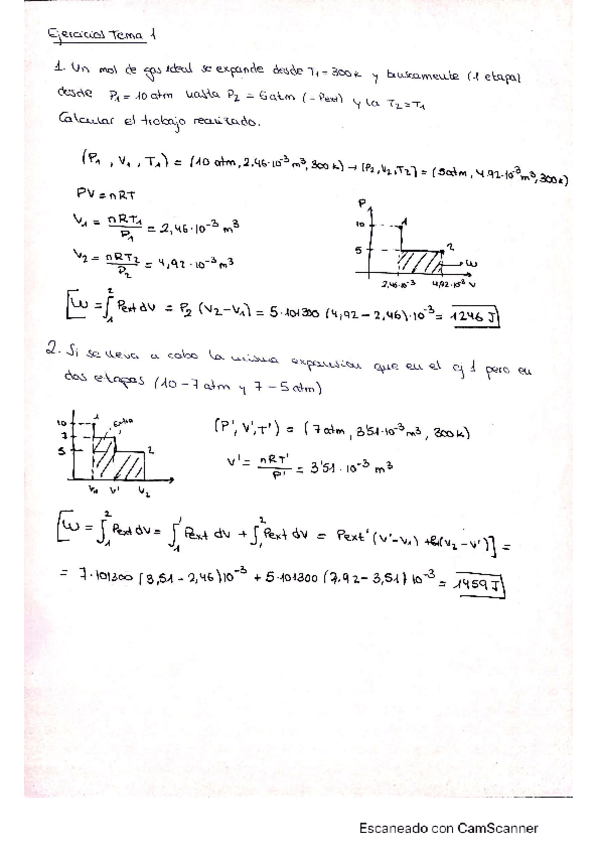 Ejercicios Tema 1
1. Un mol de gas ideal se expande desde T₁=300K y bruscamente (1 etapa)
desde P₁=10 atm hasta P₂=5 atm (=Pext) y la T₂=T₁
Calcular el trabajo realizado.
(P₁, V₁, T₁) = (10 atm, 2,46·10⁻³ m³, 300K) → (P₂, V₂, T₂) = (5 atm, 4,92·10⁻³ m³, 300K)
PV=nRT
V₁ = nRT₁/P₁ = 2,46·10⁻³ m³
V₂ = nRT₂/P₂ = 4,92·10⁻³ m³
P
10
1
5
2
W
2,46·10⁻³ 4,92·10⁻³ V
[W = ∫₁² Pext dV = P₂ (V₂-V₁) = 5·101300 (4,92-2,46)·10⁻³ = 1246 J
2. Si se lleva a cabo la misma expansión que en el ej 1 pero en
dos etapas (10-7 atm y 7-5 atm)
10
1
7
5
2
V₁ V' V₂
(P', V', T') = (7 atm, 3'51·10⁻³ m³, 300K)
V' = nRT'/P' = 3'51·10⁻³ m³
[W = ∫₁² Pext dV = ∫₁' Pext dV + ∫,² Pext dV = Pext' (V'-V₁) + (V₂-V')] =
= 7·101300 (3,51-2,46)10⁻³ + 5·101300 (7,92-3,51)10⁻³ = 1459 J
Escaneado con CamScanner